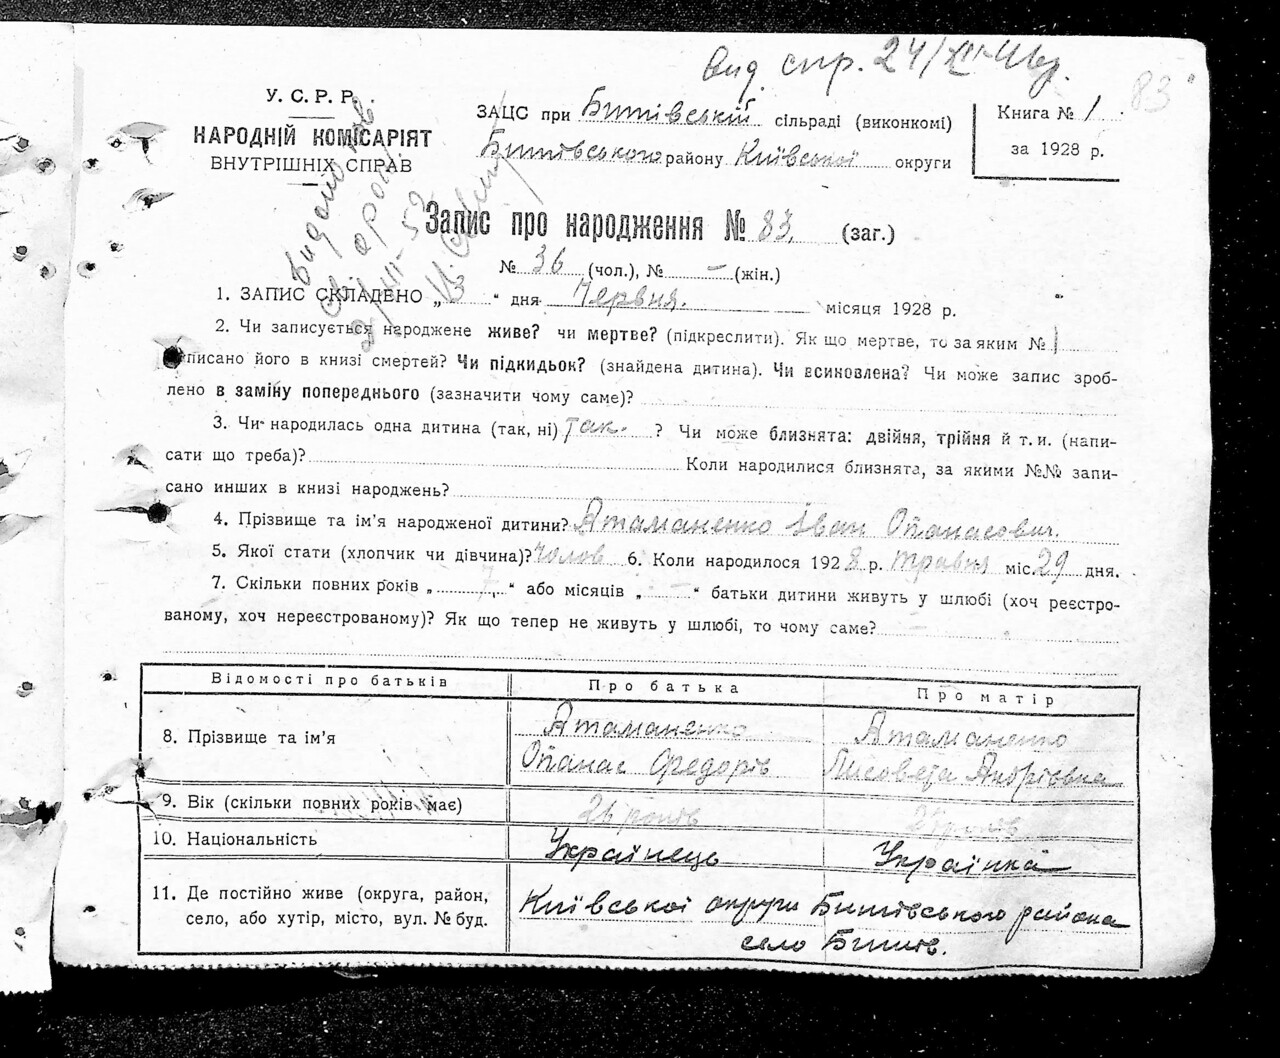 вид. спр. 24/
83
У. С. Р. Р.
НАРОДНІЙ КОМІСАРІЯТ
ВНУТРІШНІХ СПРАВ
ЗАЦС при Бишівській сільраді (виконкомі)
Бишівського району Київської округи
Книга № 1
за 1928 р.
Видано
Запис про народження № 83. (заг.)
№ 36 (чол.), № – (жін.)
1. ЗАПИС СКЛАДЕНО „ “ дня Червня. місяця 1928 р.
2. Чи записується народжене живе? чи мертве? (підкреслити). Як що мертве, то за яким №
писано його в книзі смертей? Чи підкидьок? (знайдена дитина). Чи всиновлена? Чи може запис зроб-
лено в заміну попереднього (зазначити чому саме)?
3. Чи народилась одна дитина (так, ні) так. ? Чи може близнята: двійня, трійня й т. и. (напи-
сати що треба)? Коли народилися близнята, за якими №№ запи-
сано инших в книзі народжень?
4. Прізвище та ім’я народженої дитини? Атаманенко Іван Опанасович.
5. Якої стати (хлопчик чи дівчина)? Чолов 6. Коли народилося 1928 р. травня міс. 29 дня.
7. Скільки повних років „ 7 “ або місяців „ – “ батьки дитини живуть у шлюбі (хоч реєстро-
ваному, хоч нереєстрованому)? Як що тепер не живуть у шлюбі, то чому саме? –
Відомості про батьків Про батька Про матір
8. Прізвище та ім’я Атаманенко Опанас Федорів Атаманенко Лисовета Андріївна
9. Вік (скільки повних років має) 26 років
10. Національність Українець Українка
11. Де постійно живе (округа, район, Київської округи Бишівського района
село, або хутір, місто, вул. № буд. село Бишів.